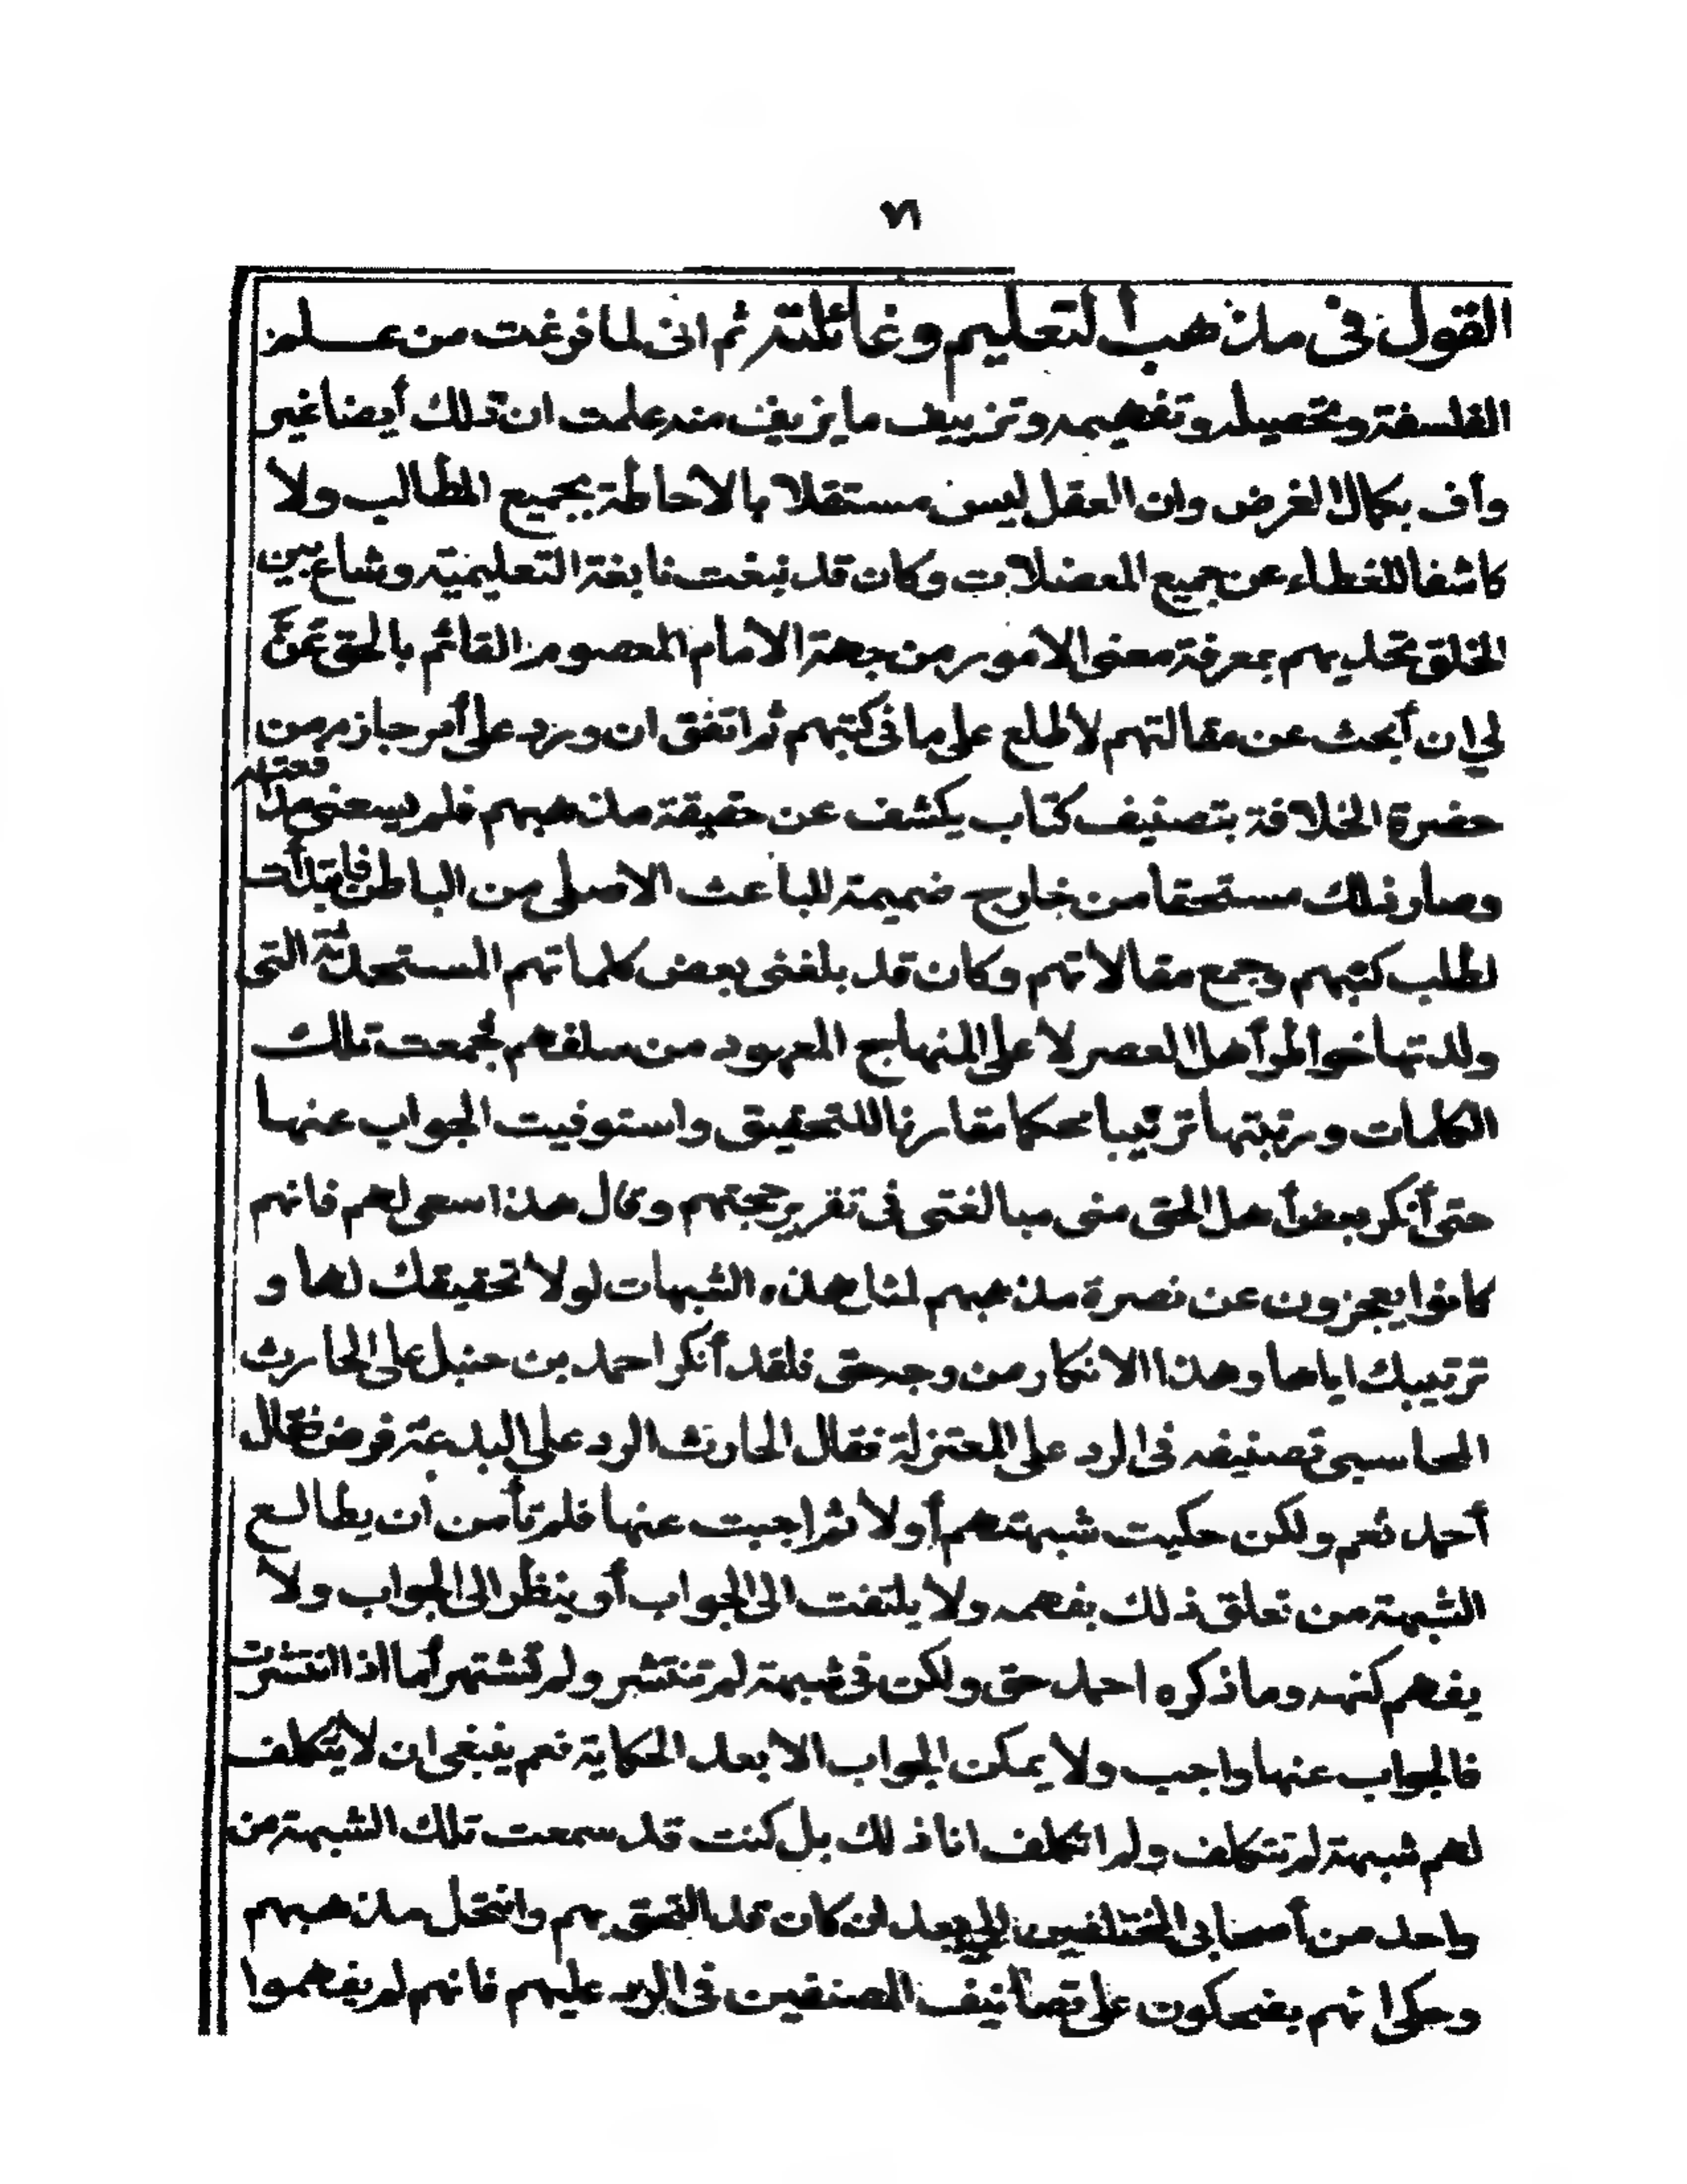 ٢١
القول فى مذهب التعليم وغائلته ثم انى لما فرغت من علم
الفلسفة وتحصيله وتفهيمه وتزييف ما يزيف منه علمت ان ذلك أيضا غير
وأف بكمال الغرض وان العقل ليس مستقلا بالاحاطة بجميع المطالب ولا
كاشفا للغطاء عن جميع المعضلات وكان قد نبغت نابغة التعليمية وشاع بين
الخلق تحديهم بمعرفة معنى الامور من جهة الامام المعصوم القائم بالحق عَنَّ
لي ان أبحث عن مقالتهم لأطلع على ما فى كتبهم ثم اتفق ان ورد على أمر جازم من
حضرة الخلافة بتصنيف كتاب يكشف عن حقيقة مذهبهم فلم يسعنى مدافعته
وصار ذلك مستحقا من خارج ضميمة للباعث الاصلى من الباطن فابتدأت
لطلب كتبهم وجمع مقالاتهم وكان قد بلغنى بعض كلماتهم المستحدثة التى
ولدتها خواطر أهل العصر لا على المنهاج المعهود من سلفهم فجمعت تلك
الكلمات ورتبتها ترتيبا محكما مقارنا للتحقيق واستوفيت الجواب عنها
حتى أنكر بعض أهل الحق منى مبالغتى فى تقرير حجتهم وقال هذا سعى لهم فانهم
كانوا يعجزون عن نصرة مذهبهم لمثل هذه الشبهات لولا تحقيقك لها و
ترتيبك اياها وهذا الانكار من وجه حق فلقد أنكر احمد بن حنبل على الحارث
المحاسبى تصنيفه فى الرد على المعتزلة فقال الحارث الرد على البدعة فرض فقال
أحمد نعم ولكن حكيت شبهتهم أولا ثم اجبت عنها فلم تأمن ان يطالع
الشبهة من تعلق ذلك بفهمه ولا يلتفت الى الجواب أو ينظر الى الجواب ولا
يفهم كنهه وما ذكره احمد حق ولكن فى شبهة لم تنتشر ولم تشتهر أما اذا انتشرت
فالجواب عنها واجب ولا يمكن الجواب الا بعد الحكاية نعم ينبغى ان لا يتكلف
لهم شبهة لم تتكلف ولم اتكلف انا ذلك بل كنت قد سمعت تلك الشبهة من
واحد من أصحابى المختلفين الي بعد ان كان قد التحق بهم وانتحل مذهبهم
وحكى انهم يضحكون على تصانيف المصنفين فى الرد عليهم فانهم لم يفهموا